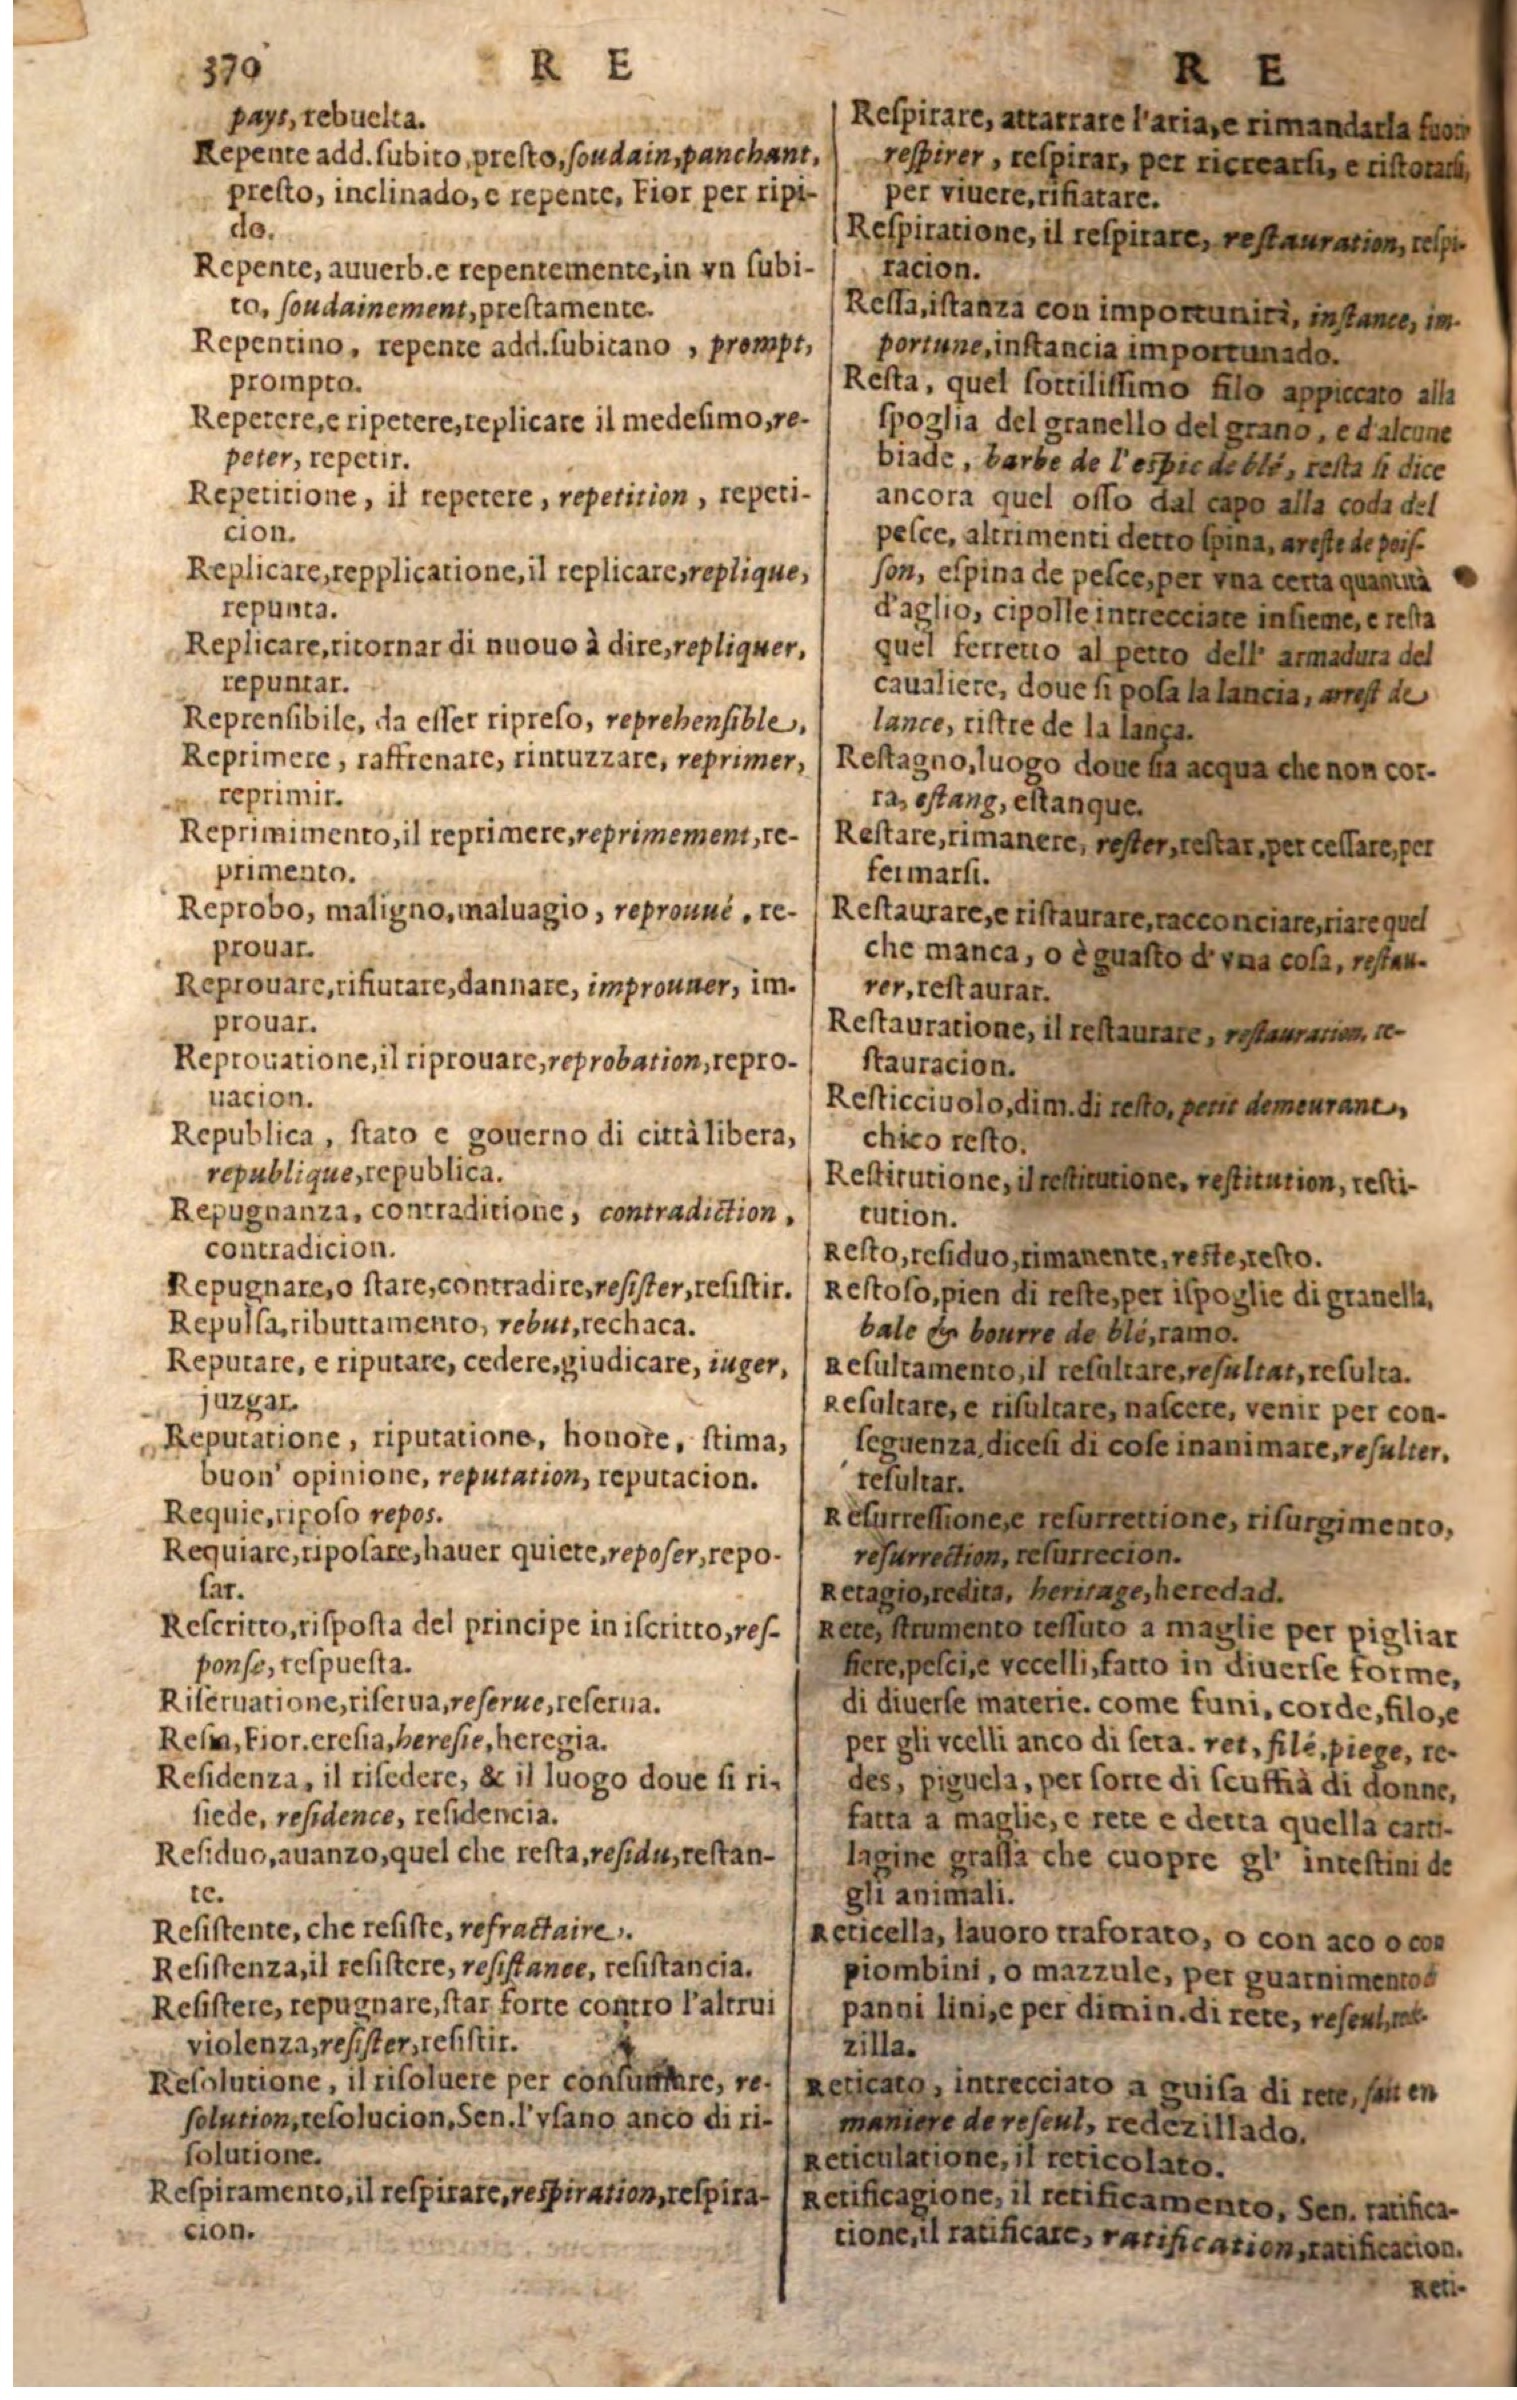 370 R E
pays, rebuelta.
Repente add. ſubito, preſto, ſoudain, panchant,
preſto, inclinado, e repente, Fior per ripi-
do.
Repente, auuerb. e repentemente, in vn ſubi-
to, ſoudainement, preſtamente.
Repentino, repente add. ſubitano, prompt,
prompto.
Repetere, e ripetere, replicare il medeſimo, re-
peter, repetir.
Repetitione, il repetere, repetition, repeti-
cion.
Replicare, repplicatione, il replicare, replique,
repunta.
Replicare, ritornar di nuouo à dire, repliquer,
repuntar.
Reprenſibile, da eſſer ripreſo, reprehenſible,
Reprimere, raffrenare, rintuzzare, reprimer,
reprimir.
Reprimimento, il reprimere, reprimement, re-
primento.
Reprobo, maligno, maluagio, reprouué, re-
prouar.
Reprouare, rifiutare, dannare, improuuer, im-
prouar.
Reprouatione, il riprouare, reprobation, repro-
uacion.
Republica, ſtato e gouerno di città libera,
republique, republica.
Repugnanza, contraditione, contradiction,
contradicion.
Repugnare, o ſtare, contradire, reſiſter, reſiſtir.
Repulſa, ributtamento, rebut, rechaca.
Reputare, e riputare, cedere, giudicare, iuger,
juzgar.
Reputatione, riputatione, honore, ſtima,
buon' opinione, reputation, reputacion.
Requie, ripoſo repos.
Requiare, ripoſare, hauer quiete, repoſer, repo-
ſar.
Reſcritto, riſpoſta del principe in iſcritto, reſ-
ponſe, reſpueſta.
Riſeruatione, riſerua, reſerue, reſerua.
Reſia, Fior. ereſia, hereſie, heregia.
Reſidenza, il riſedere, & il luogo doue ſi ri-
ſiede, reſidence, reſidencia.
Reſiduo, auanzo, quel che reſta, reſidu, reſtan-
te.
Reſiſtente, che reſiſte, refractaire.
Reſiſtenza, il reſiſtere, reſiſtance, reſiſtancia.
Reſiſtere, repugnare, ſtar forte contro l'altrui
violenza, reſiſter, reſiſtir.
Reſolutione, il riſoluere per conſumare, re-
ſolution, reſolucion, Sen. l'vſano anco di ri-
ſolutione.
Reſpiramento, il reſpirare, reſpiration, reſpira-
cion.
R E
Reſpirare, attarrare l'aria, e rimandarla fuori
reſpirer, reſpirar, per ricrearſi, e riſtorarſi,
per viuere, rifiatare.
Reſpiratione, il reſpirare, reſtauration, reſpi-
racion.
Reſſa, iſtanza con importunità, inſtance, im-
portune, inſtancia importunado.
Reſta, quel ſottiliſſimo filo appiccato alla
ſpoglia del granello del grano, e d'alcune
biade, barbe de l'eſpic de blé, reſta ſi dice
ancora quel oſſo dal capo alla coda del
peſce, altrimenti detto ſpina, areſte de poiſ-
ſon, eſpina de peſce, per vna certa quantità
d'aglio, cipolle intrecciate inſieme, e reſta
quel ferretto al petto dell' armadura del
caualiere, doue ſi poſa la lancia, arreſt de
lance, riſtre de la lança.
Reſtagno, luogo doue ſia acqua che non cor-
ra, eſtang, eſtanque.
Reſtare, rimanere, reſter, reſtar, per ceſſare, per
fermarſi.
Reſtaurare, e riſtaurare, racconciare, riare quel
che manca, o è guaſto d' vna coſa, reſtau-
rer, reſtaurar.
Reſtauratione, il reſtaurare, reſtauration, re-
ſtauracion.
Reſticciuolo, dim. di reſto, petit demeurant,
chico reſto.
Reſtitutione, il reſtitutione, reſtitution, reſti-
tution.
Reſto, reſiduo, rimanente, reſte, reſto.
Reſtoſo, pien di reſte, per iſpoglie di granella,
bale & bourre de blé, ramo.
Reſultamento, il reſultare, reſultat, reſulta.
Reſultare, e riſultare, naſcere, venir per con-
ſeguenza, diceſi di coſe inanimate, reſulter,
reſultar.
Reſurreſſione, e reſurrettione, riſurgimento,
reſurrection, reſurrecion.
Retagio, redita, heritage, heredad.
Rete, ſtrumento teſſuto a maglie per pigliar
fiere, peſci, e vccelli, fatto in diuerſe forme,
di diuerſe materie. come funi, corde, filo, e
per gli vcelli anco di ſeta. ret, filé, piege, re-
des, piguela, per ſorte di ſcuffià di donne,
fatta a maglie, e rete e detta quella carti-
lagine graſſa che cuopre gl' inteſtini de
gli animali.
Reticella, lauoro traforato, o con aco o con
piombini, o mazzule, per guarnimento
panni lini, e per dimin. di rete, reſeul,
zilla.
Reticato, intrecciato a guiſa di rete, fait en
maniere de reſeul, redezillado.
Reticulatione, il reticolato.
Retificagione, il retificamento, Sen. ratifica-
tione, il ratificare, ratification, ratificacion.
Reti-